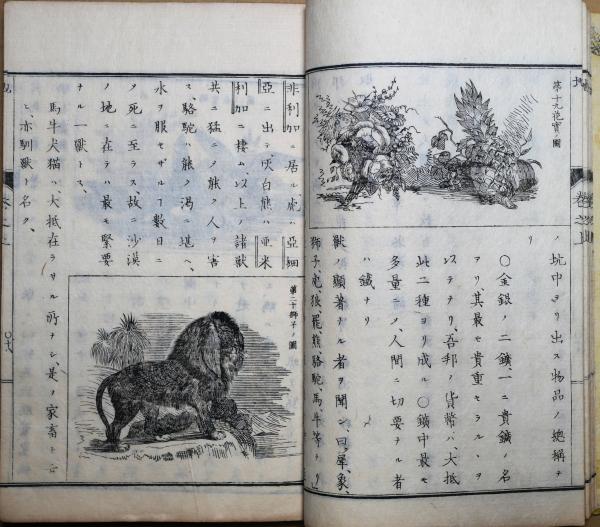 第十九花實ノ圖
ノ坑中ヨリ出ス物品ノ總稱ナ
リ
○金銀ノ二鑛ニ貴鑛ノ名
アリ、其最モ貴重セラルヽヲ
以テナリ、吾邦ノ貨幣ハ大抵
此二種ヨリ成ル○鑛中最モ
多量ニノ、人間ニ切要ナル者
ハ鐵ナリ
獸ノ顯著ナル者ヲ聞ン曰、犀、象、
獅子、虎、熊、駱駝、馬、牛等ナリ
非利加ニ居ル虎ハ亞細
亞ニ出テ灰白熊ハ亜米
利加ニ棲ム、以上ノ諸獸
共ニ猛ニノ能ク人ヲ害
ス、駱駝ハ能ク渇ニ堪ヘ、
水ヲ服セザル丁數日ニ
ノ死ニ至ラス、故ニ沙漠
ノ地ニ在テハ最モ緊要
ナル一獸トス
第二十獅子ノ圖
馬牛犬猫ハ、大抵在ラザル所ナシ、是ヲ家畜ト云
ヒ、亦馴獸ト名ク、